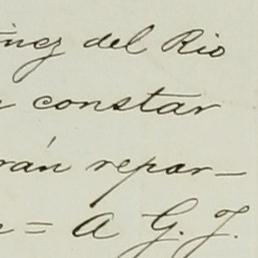 ínez del Rio
constar
rán repar-
= A G. J.